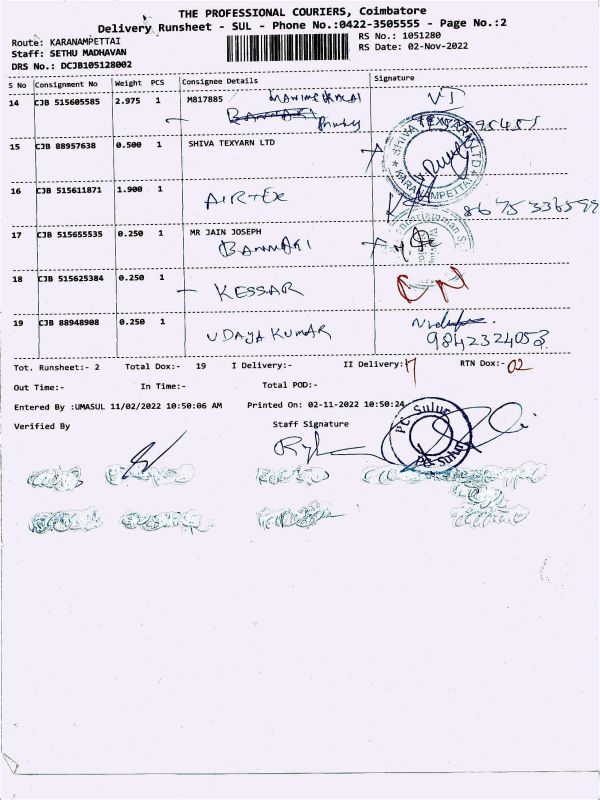 THE PROFESSIONAL COURIERS, Coimbatore
Delivery Runsheet - SUL - Phone No.:0422-3505555 - Page No.:2
Route: KARANAMPETTAI
RS No.: 1051280
Staff: SETHU MADHAVAN
RS Date: 02-Nov-2022
DRS No.: DCJB105128002
S No Consignment No Weight PCS Consignee Details Signature
14 CJB 515605585 2.975 1 M817885 VJ
BANNARI
15 CJB 88957638 0.500 1 SHIVA TEXYARN LTD
SHIVA TEXYARN LTD KARANAMPETTAI
16 CJB 515611871 1.900 1 AIRTEX 8675336599
17 CJB 515655535 0.250 1 MR JAIN JOSEPH
BANNARI
18 CJB 515625384 0.250 1 KESSAR CN
19 CJB 88948908 0.250 1 UDAYA KUMAR 9842324053
Tot. Runsheet:- 2 Total Dox:- 19 I Delivery:- II Delivery: 17 RTN Dox:- 02
Out Time:- In Time:- Total POD:-
Entered By :UMASUL 11/02/2022 10:50:06 AM Printed On: 02-11-2022 10:50:24
Verified By Staff Signature
PC Sulur
PC Sulur